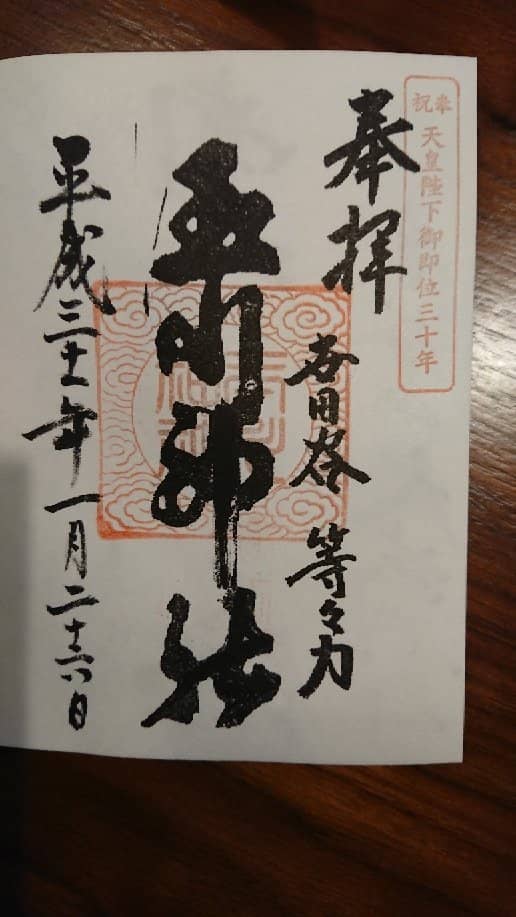 奉祝 天皇陛下御即位三十年
奉拝
世田谷 等々力
玉川神社
平成三十一年一月二十六日